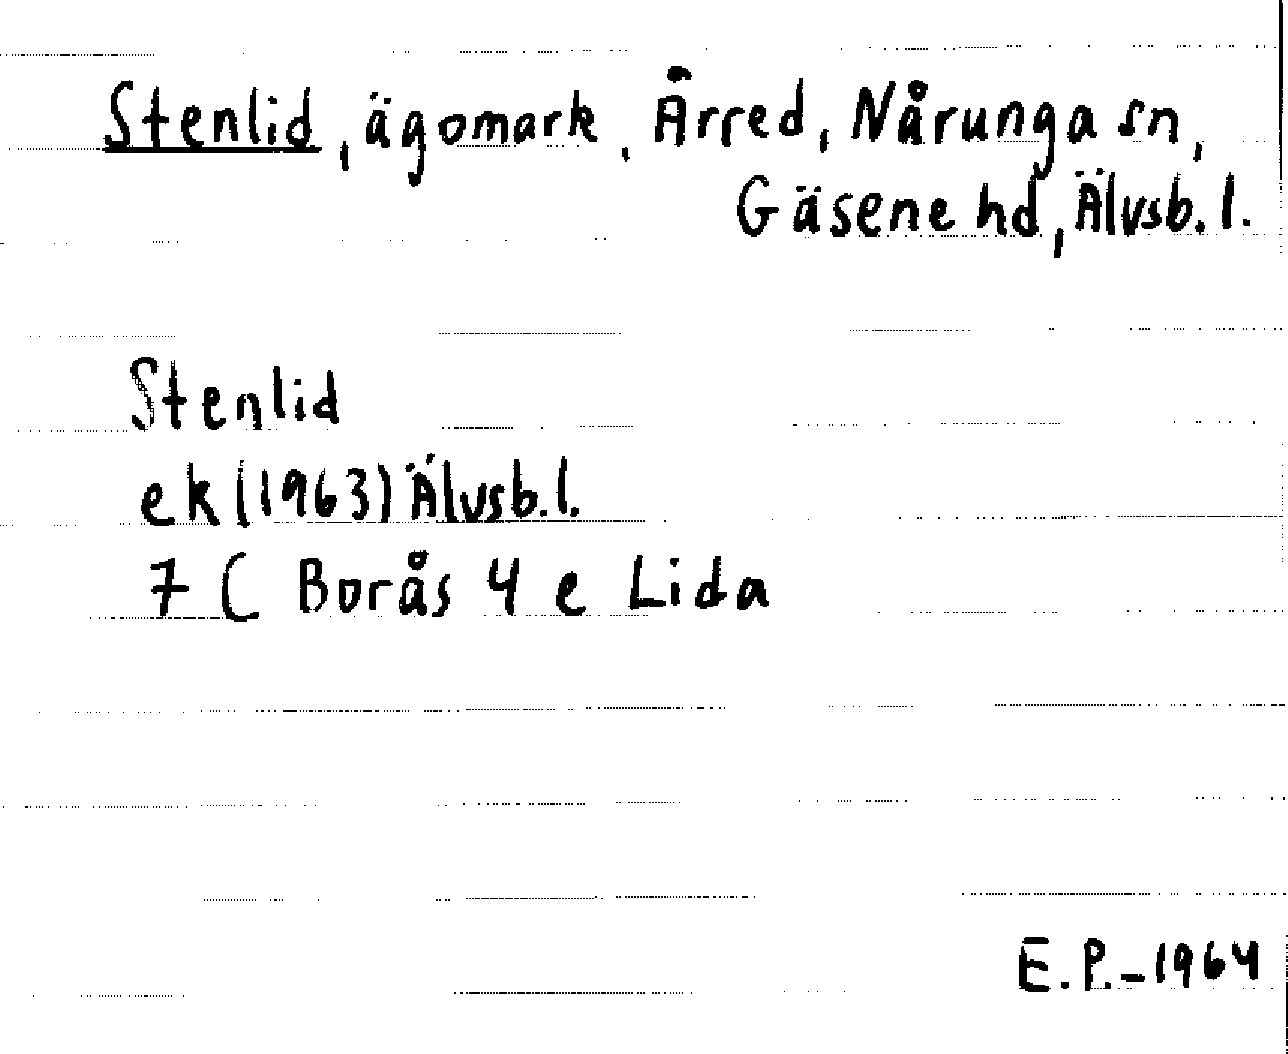 Stenlid, ägomark, Årred, Nårunga sn,
Gäsene hd, Älvsb. l.
Stenlid
ek (1963) Älvsb. l.
7 C Borås 4 e Lida
E. P. - 1964